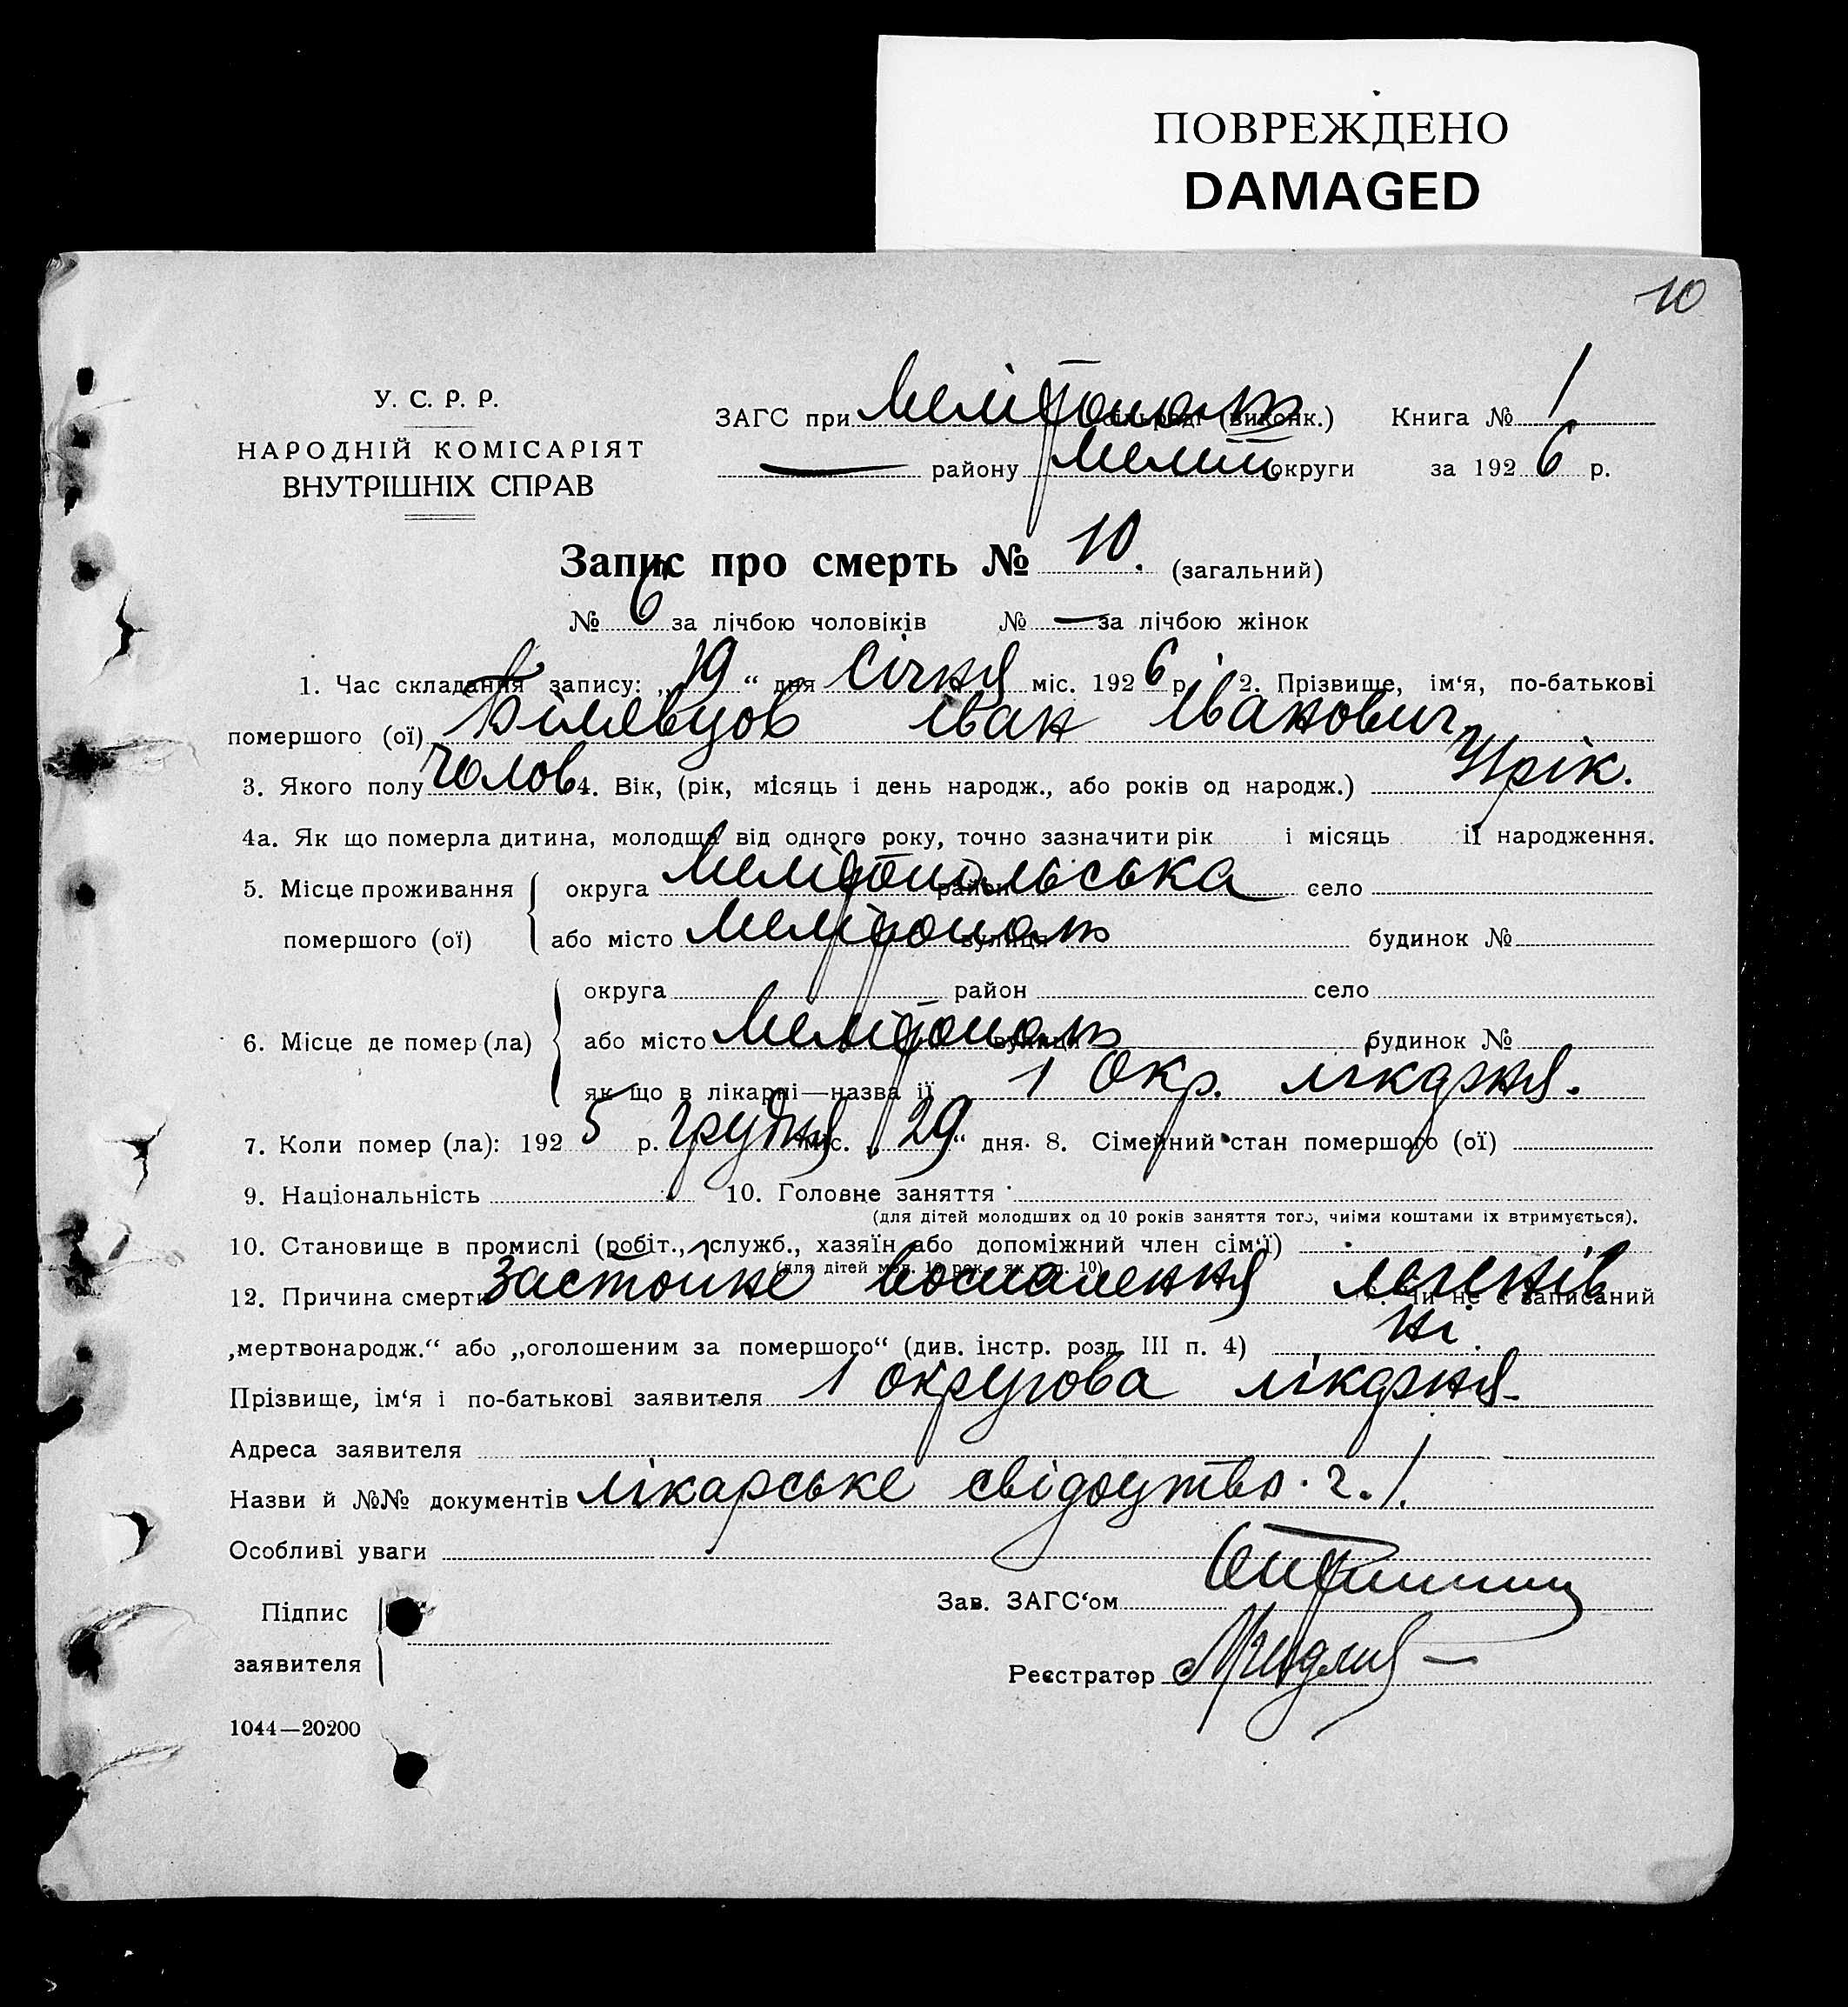 ПОВРЕЖДЕНО
DAMAGED
10
У. С. Р. Р.
НАРОДНІЙ КОМІСАРІЯТ
ВНУТРІШНІХ СПРАВ
ЗАГС при Мелітополь сільраді (виконк.) Книга № 1
— району Меліт округи за 1926 р.
Запис про смерть № 10. (загальний)
№ 6 за лічбою чоловіків № — за лічбою жінок
1. Час складання запису: „19“ дня Січня міс. 1926 р. 2. Прізвище, ім‘я, по-батькові
помершого (ої) Білевцов Іван Іванович
3. Якого полу Чолов 4. Вік, (рік, місяць і день народж., або років од народж.) рік.
4а. Як що померла дитина, молодша від одного року, точно зазначити рік і місяць її народження.
5. Місце проживання округа Мелітопольська район село
помершого (ої) або місто Мелітополь вулиця будинок №
округа район село
6. Місце де помер (ла) або місто Мелітополь вулиця будинок №
як що в лікарні—назва її 1 Окр. лікарня.
7. Коли помер (ла): 1925 р. Грудня міс. „29“ дня. 8. Сімейний стан помершого (ої)
9. Національність 10. Головне заняття
(для дітей молодших од 10 років заняття того, чиїми коштами їх втримується).
10. Становище в промислі (робіт., служб., хазяїн або допоміжний член сім‘ї)
(для дітей мол. 10 рок. як у п. 10)
12. Причина смерти застойне воспалення легенів Чи не є записаний
„мертвонародж.“ або „оголошеним за помершого“ (див. інстр. розд. III п. 4) ні.
Прізвище, ім‘я і по-батькові заявителя 1 округова лікарня
Адреса заявителя
Назви й №№ документів лікарське свідоцтво ч. 1.
Особливі уваги
Підпис
заявителя
Зав. ЗАГС‘ом
Реєстратор
1044—20200